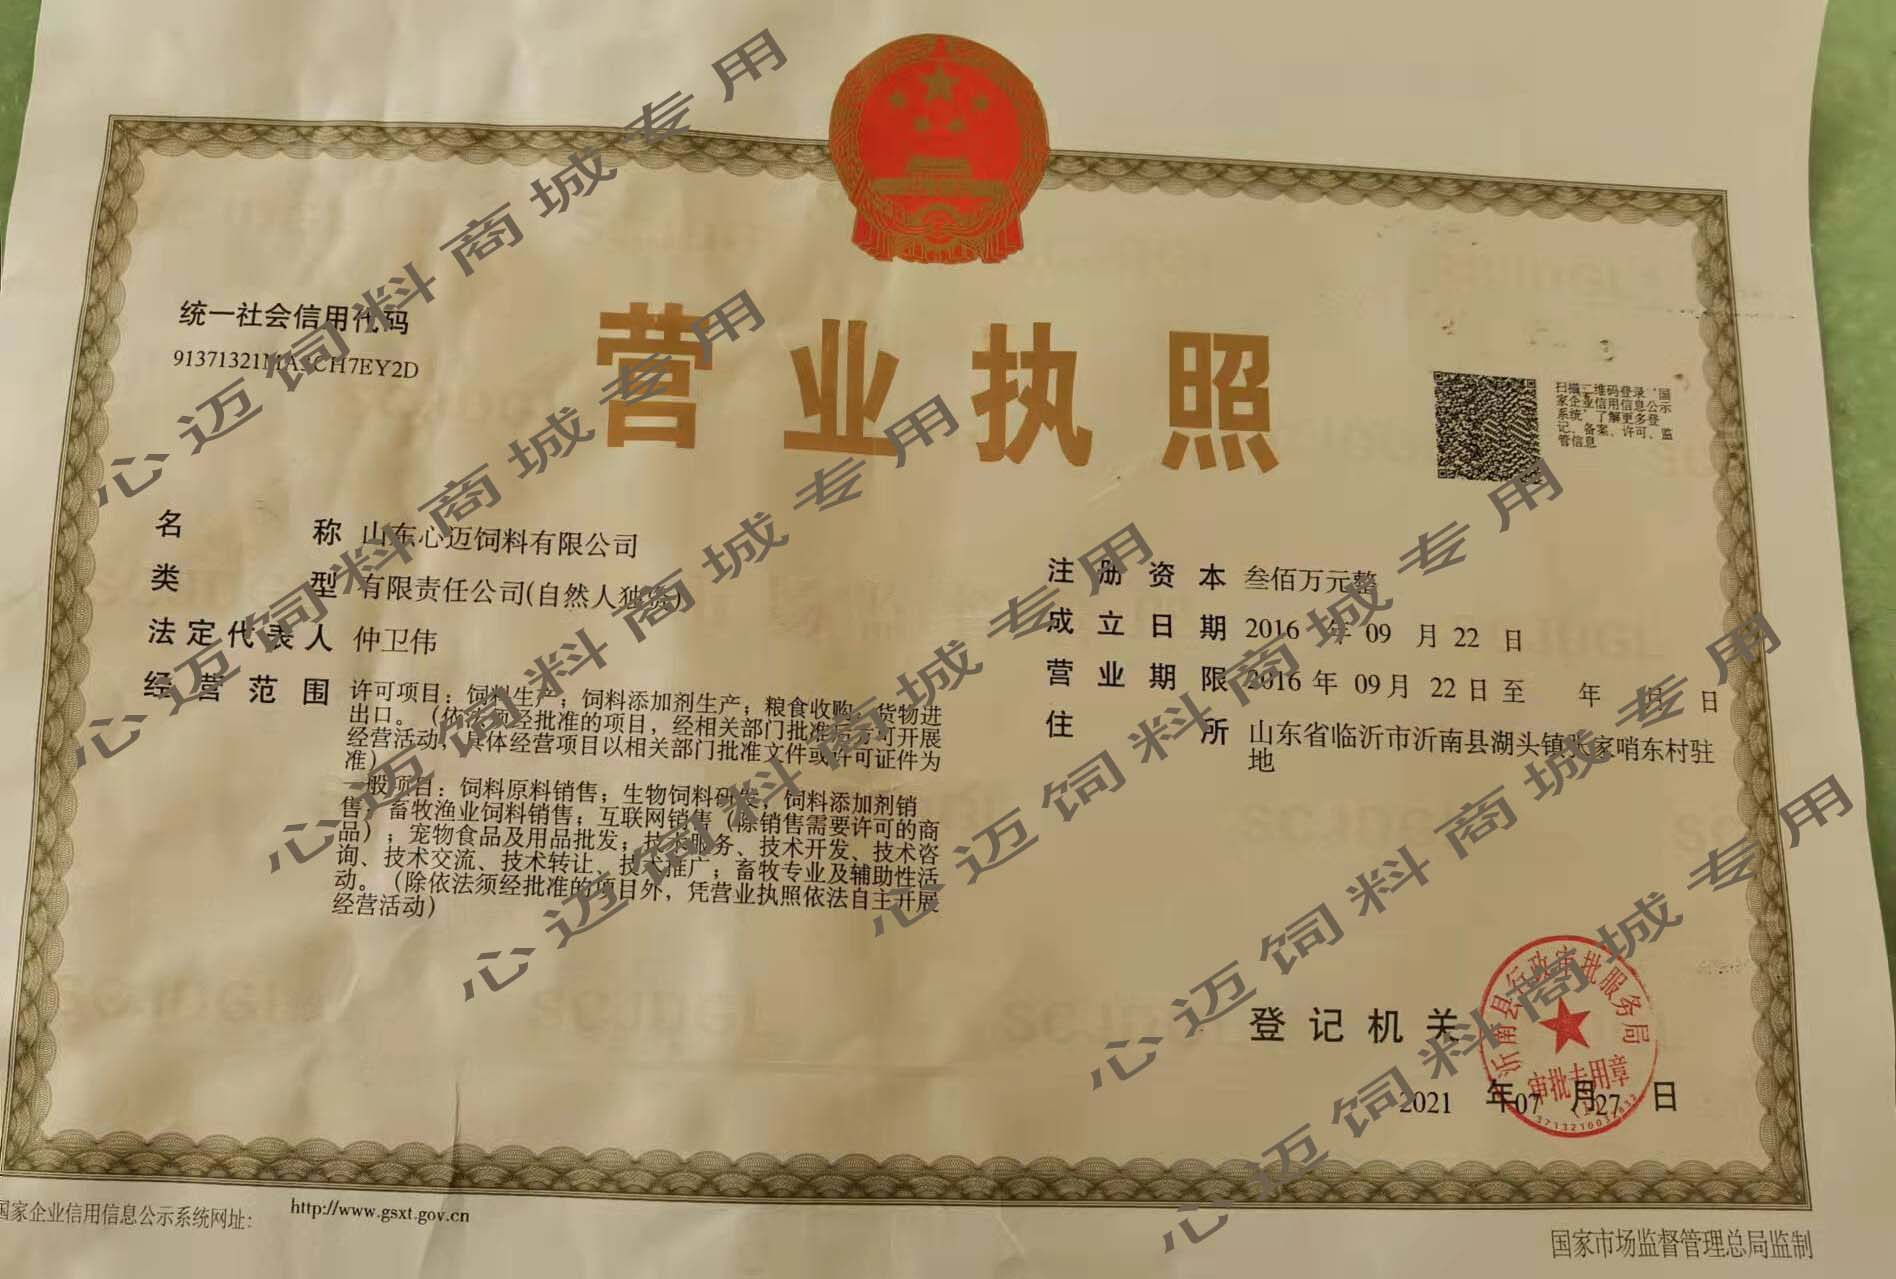 统一社会信用代码
91371321MA3CH7EY2D
营业执照
扫描二维码登录“国
家企业信用信息公示
系统”了解更多登
记、备案、许可、监
管信息
名称 山东心迈饲料有限公司
类型 有限责任公司(自然人独资)
法定代表人 仲卫伟
经营范围 许可项目：饲料生产；饲料添加剂生产；粮食收购；货物进
出口。（依法须经批准的项目，经相关部门批准后方可开展
经营活动，具体经营项目以相关部门批准文件或许可证件为
准）
一般项目：饲料原料销售；生物饲料研发；饲料添加剂销
售；畜牧渔业饲料销售；互联网销售（除销售需要许可的商
品）；宠物食品及用品批发；技术服务、技术开发、技术咨
询、技术交流、技术转让、技术推广；畜牧专业及辅助性活
动。（除依法须经批准的项目外，凭营业执照依法自主开展
经营活动）
注册资本 叁佰万元整
成立日期 2016 年 09 月 22 日
营业期限 2016 年 09 月 22 日 至 年 月 日
住所 山东省临沂市沂南县湖头镇张家哨东村驻
地
登记机关
沂南县行政审批服务局
审批专用章
2021 年 07 月 27 日
国家企业信用信息公示系统网址：
http://www.gsxt.gov.cn
国家市场监督管理总局监制
心迈饲料商城专用
心迈饲料商城专用
心迈饲料商城专用
心迈饲料商城专用
心迈饲料商城专用
心迈饲料商城专用
心迈饲料商城专用